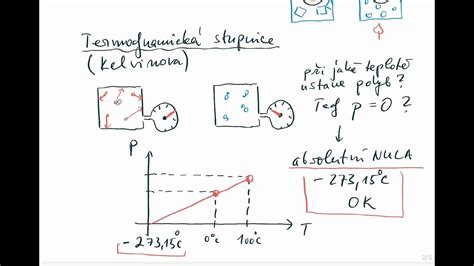 Termodynamická stupnice
(Kelvinova)
při jaké teplotě
ustane pohyb?
Tedy p=0?
absolutní NULA
-273,15°C
0K
P
-273,15°C
0°C
100°C
T
2/5